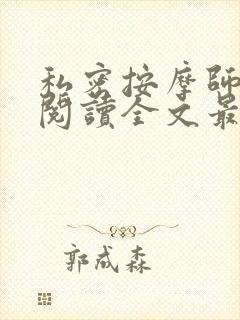 私密按摩師
閱讀全文最
郭成森